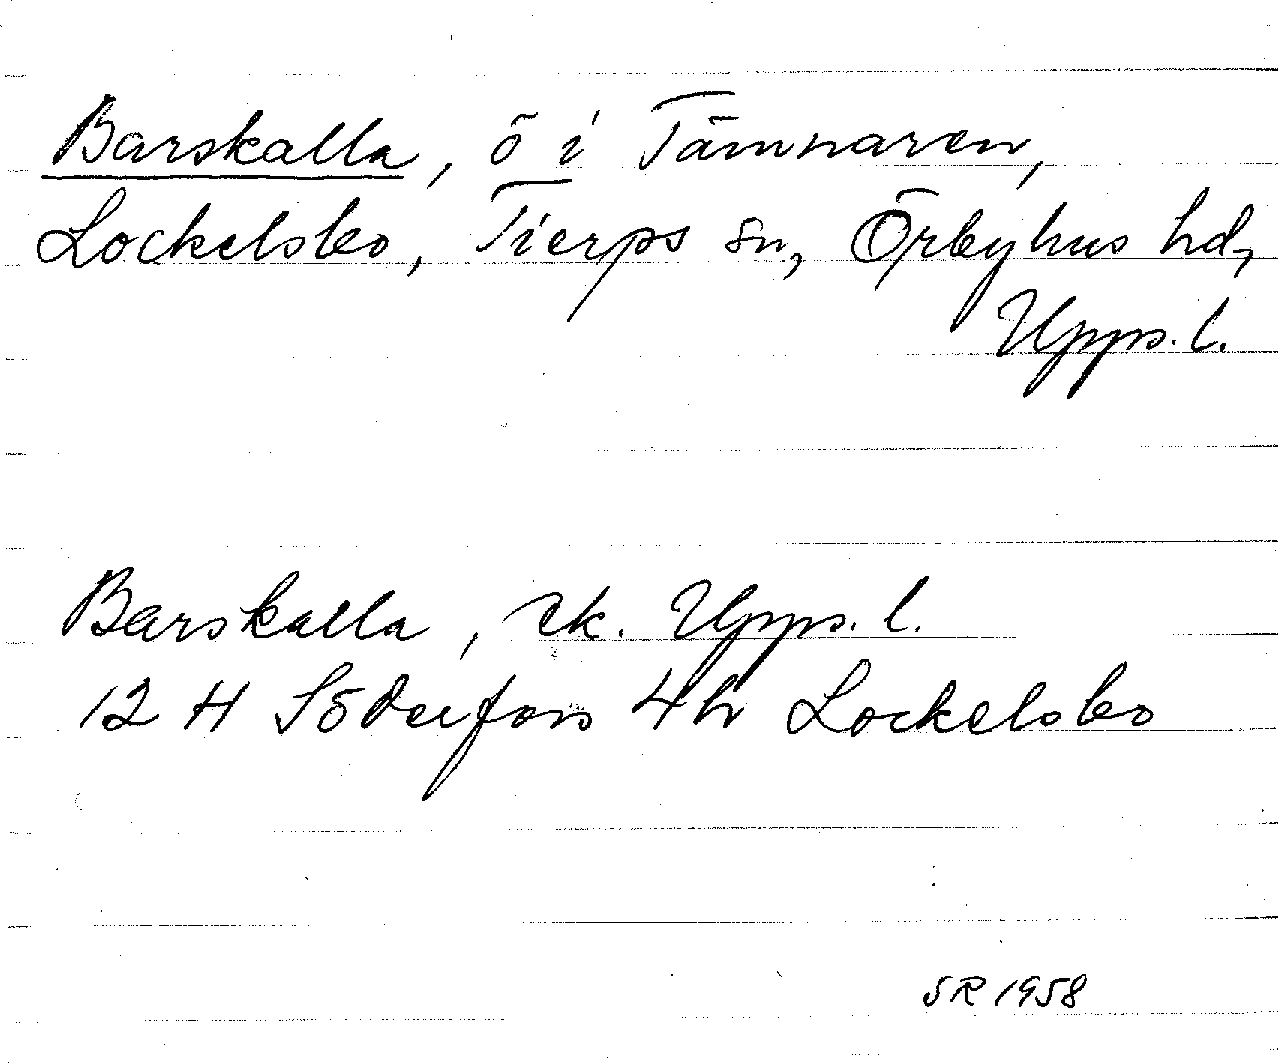 Barskalla, ö i Tämnaren,
Lockelsbo, Tierps sn, Örbyhus hd,
Upps. l.
Barskalla, ek. Upps. l.
12 H Söderfors 4h Lockelsbo
SR 1958